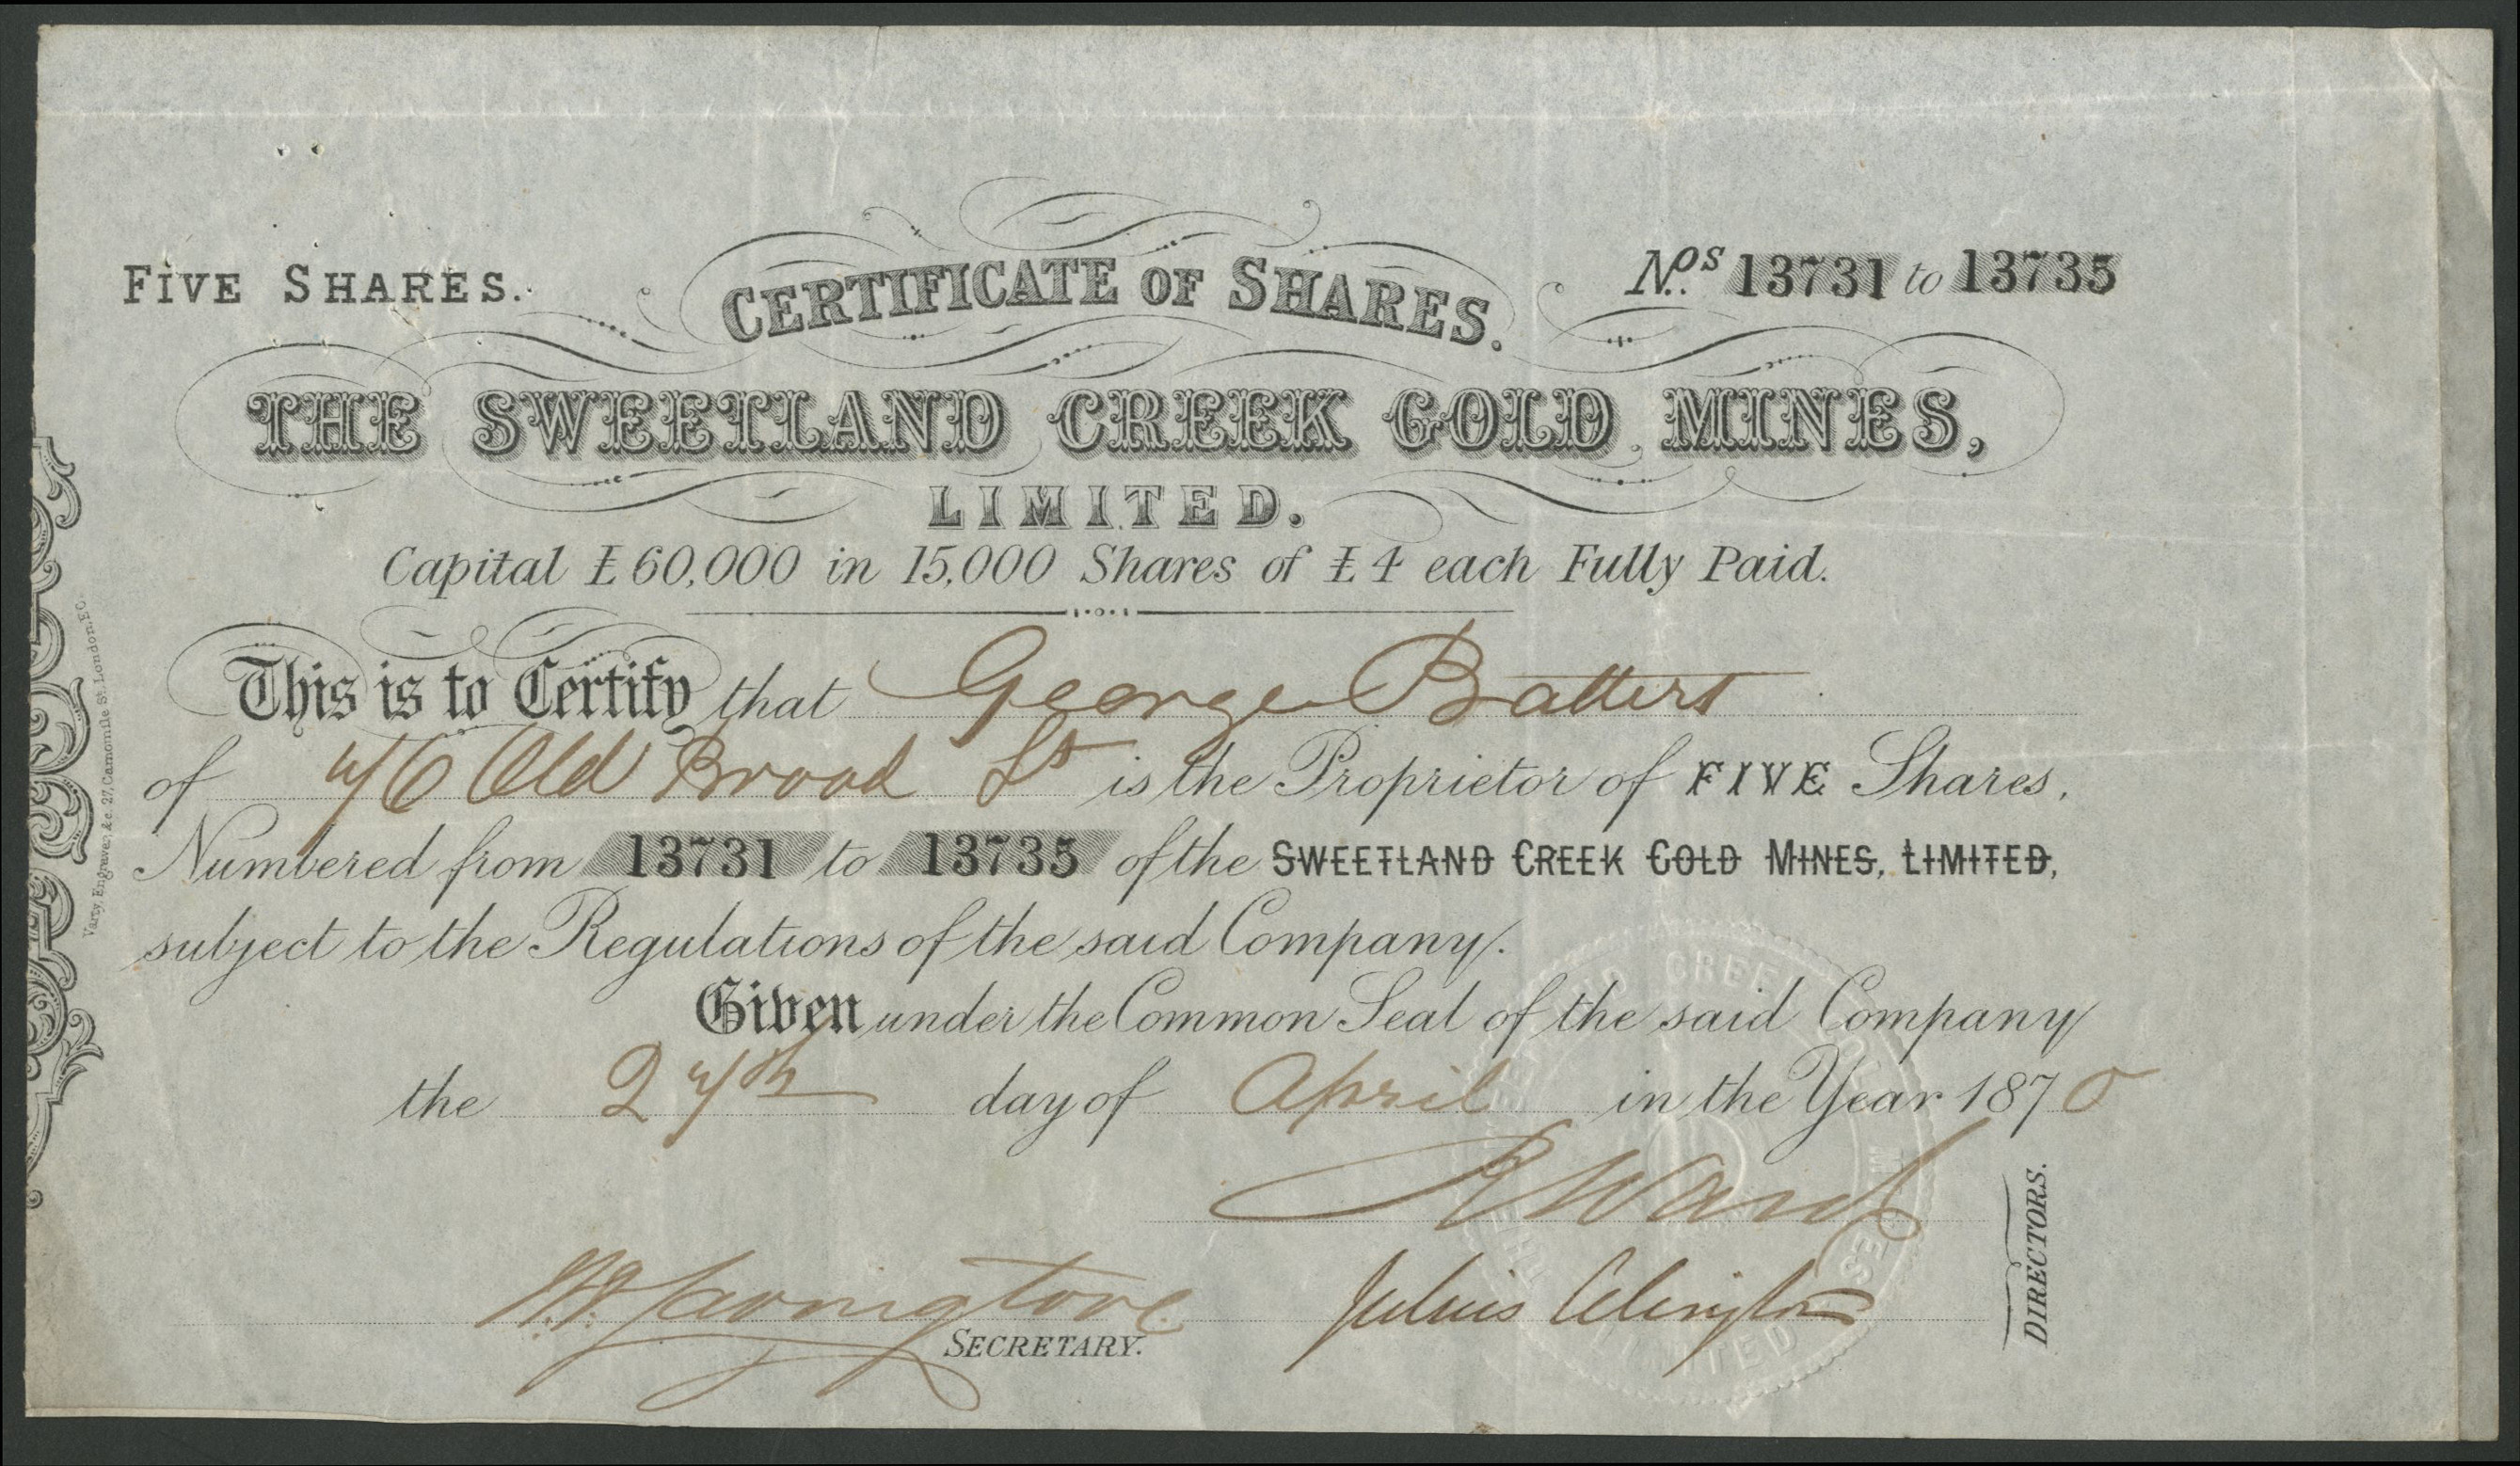 FIVE SHARES.
CERTIFICATE OF SHARES.
Nos. 13731 to 13735
THE SWEETLAND CREEK GOLD MINES,
LIMITED.
Capital £60,000 in 15,000 Shares of £4 each Fully Paid.
This is to Certify that George Batters
of 76 Old Broad St is the Proprietor of FIVE Shares,
Numbered from 13731 to 13735 of the SWEETLAND CREEK GOLD MINES, LIMITED,
subject to the Regulations of the said Company.
Given under the Common Seal of the said Company
the 27th day of April in the Year 1870
Ward
Julius Alington
DIRECTORS.
SECRETARY.
Varty, Engraver, &c. 27, Camomile St. London, E.C.
SWEETLAND CREEK GOLD MINES LIMITED